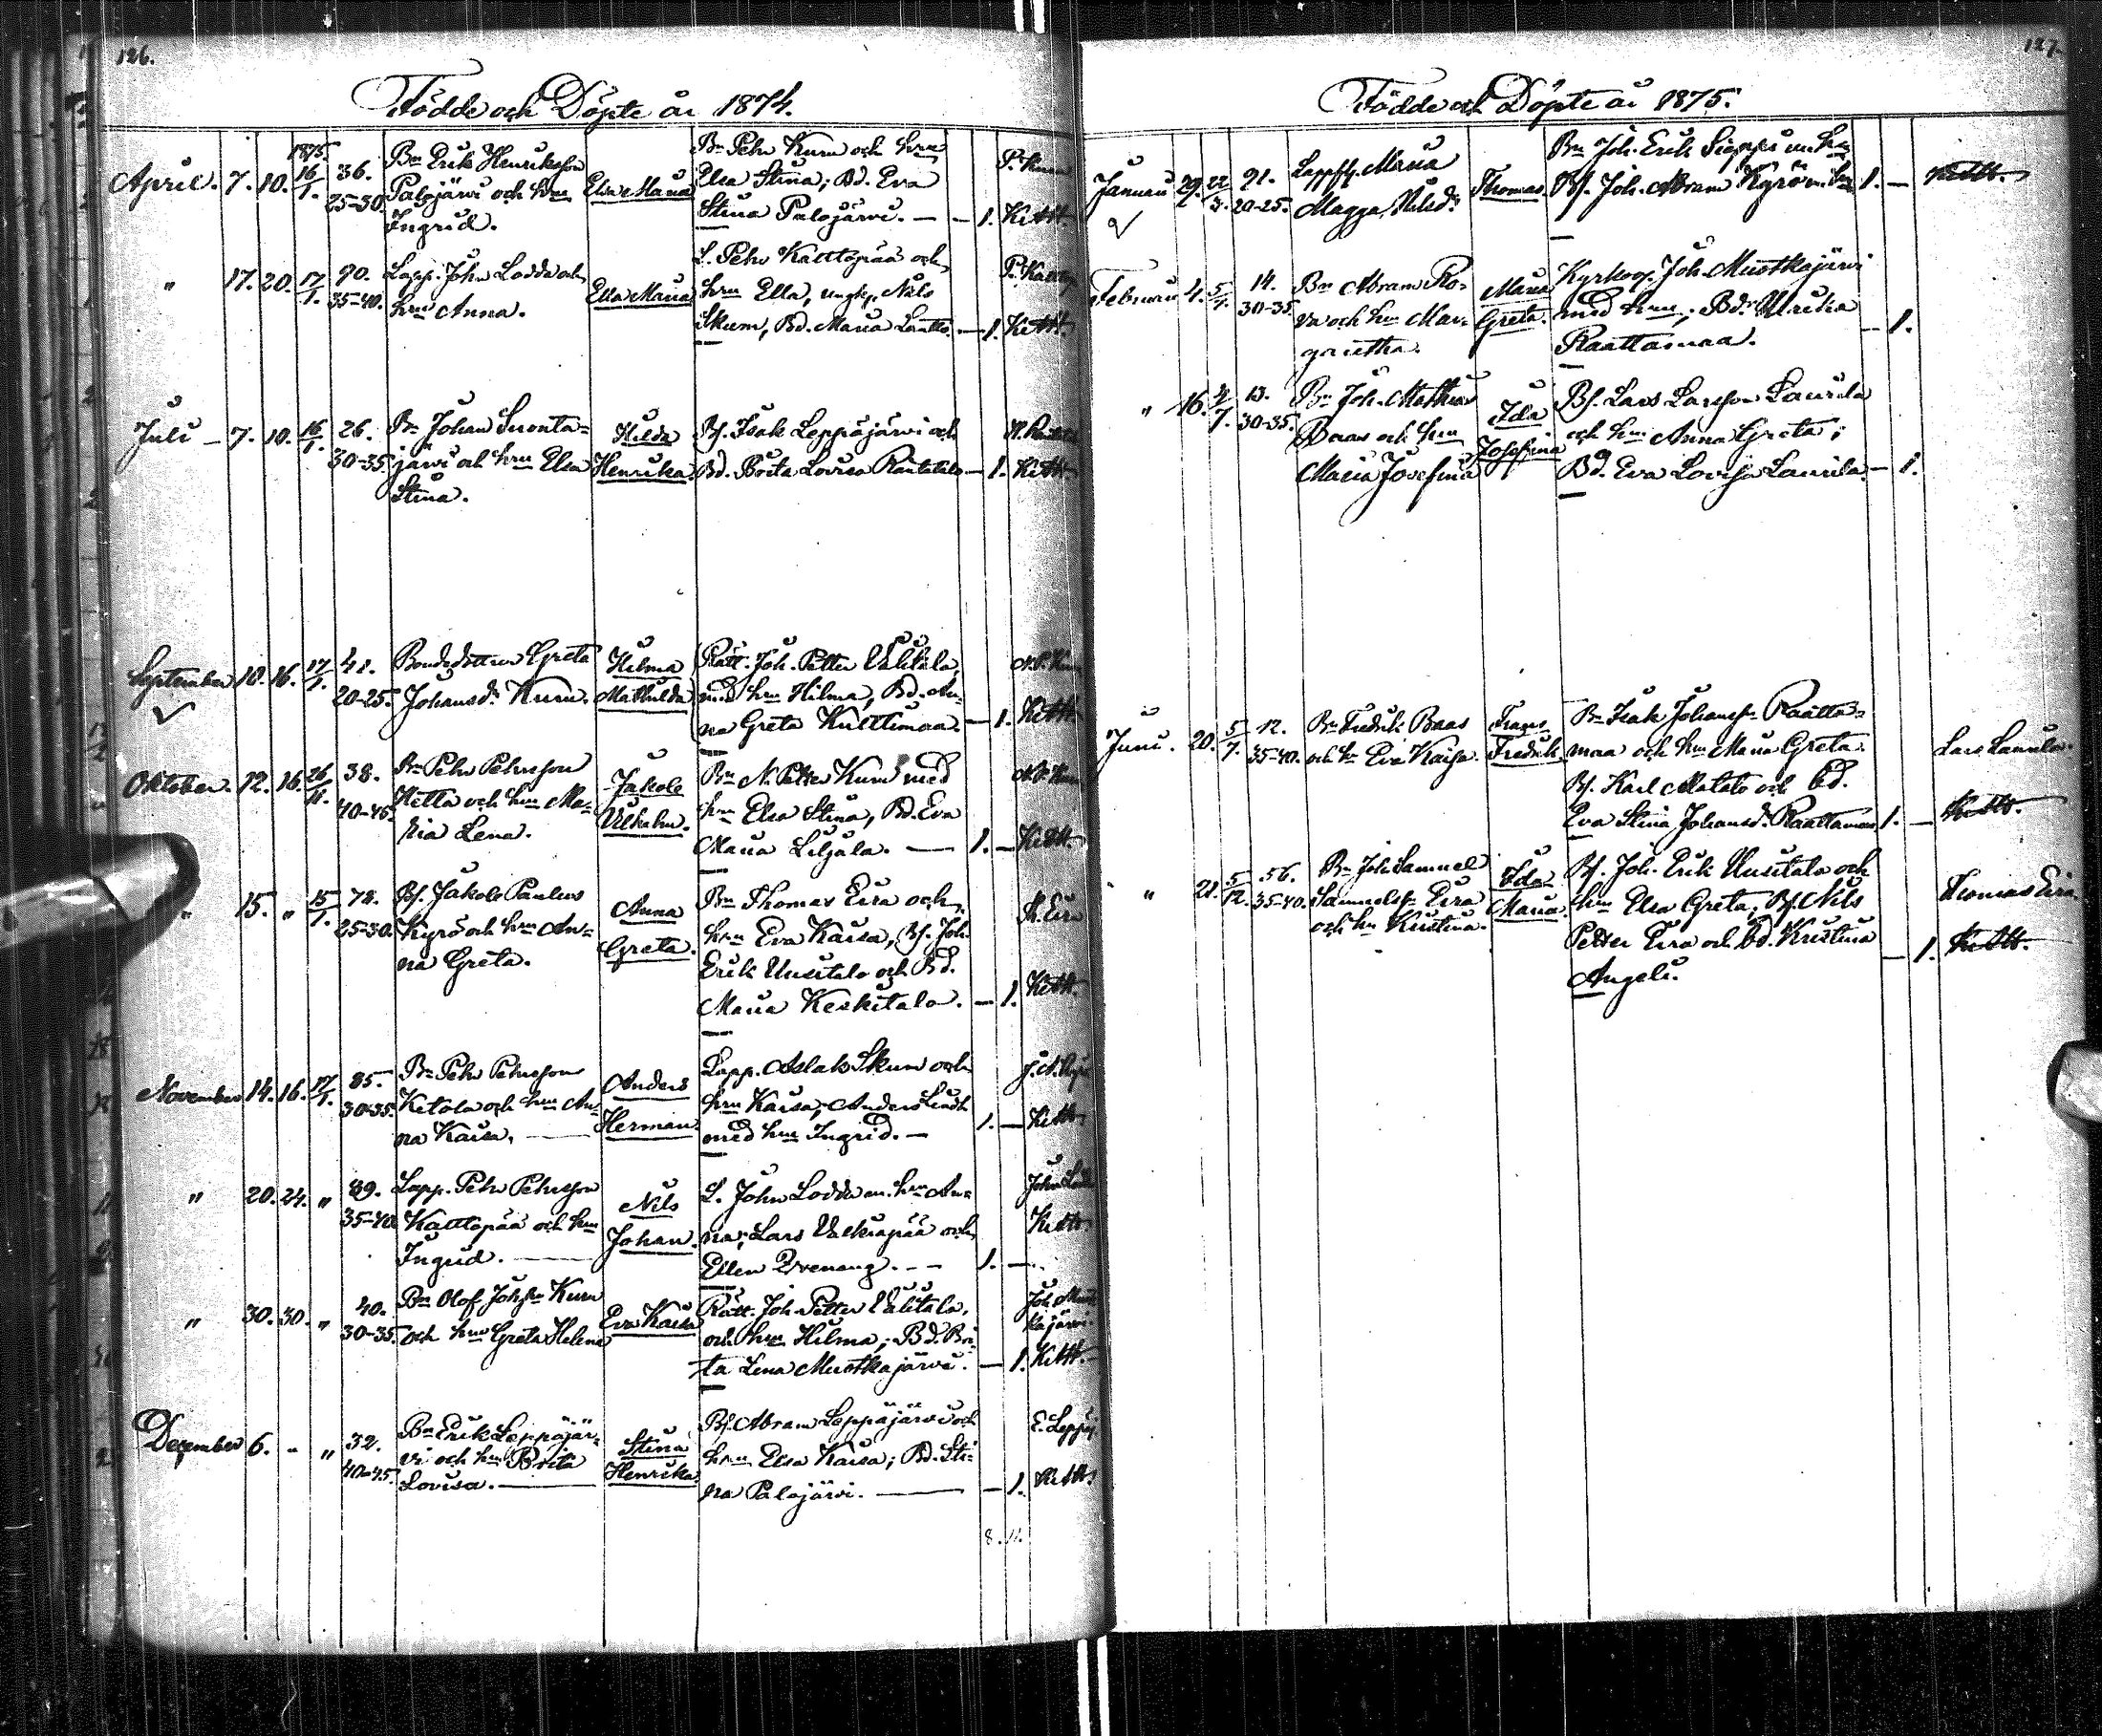 126.
Födde och Döpte år 1874.
1875.
April. 7. 10. 16/1. 36. 25-30. Bn Erik Henriksson
Palojärvi och hru
Ingrid.
Elsa Maria
Bn Pehr Kuru och hru
Elsa Stina; Bd. Eva
Stina Palojärvi. — — 1.
P. Kuru
Kitt.
" 17. 20. 17/1. 90. 35-40. Lapp. John Lodda och
hru Anna.
Ella Maria
L. Pehr Kalttopää och
hru Ella, ungk. Nils
Skum, Bd. Maria Lantto. — 1.
Kitt.
Juli — 7. 10. 16/1. 26. 30-35. Bn Johan Suonta=
järvi och hru Elsa
Stina.
Hilda
Henrika.
Bs. Isak Leppäjärvi och
Bd. Brita Lovisa Rautatalo — 1.
Kitt.
September 10. 16. 17/1. 41. 20-25. Bondedottren Greta
Johansdr Kuru.
Hilma
Mathilda
Rätt. Joh. Petter Välitalo,
med hru Hilma, Bd. An-
na Greta Kulttimaa. — 1.
N. P. Kuru
Kitt.
Oktober. 12. 16. 26/11. 38. 40-45. Bn Pehr Pehrsson
Hetta och hru Ma-
ria Lena.
Jakob
Vilhelm.
Bn N. Petter Kuru med
hru Elsa Stina, Bd. Eva
Maria Liljala. — 1. —
N. P. Kuru
Kitt.
" 15. " 15/1. 72. 25-30. Bs. Jakob Paulus
Kyrö och hru An=
na Greta.
Anna
Greta.
Bn Thomas Eira och
hru Eva Kaisa, Bs. Joh.
Erik Uusitalo och Bd.
Maria Keskitalo. — 1.
Th. Eira
Kitt.
November 14. 16. 17/1. 85. 30-35. Bn Pehr Pehrsson
Ketola och hru An-
na Kaisa. —
Anders
Herman.
Lapp. Aslak Skum och
hru Kaisa; Anders
med hru Ingrid. — 1. —
Kitt.
" 20. 24. " 89. 35-40. Lapp. Pehr Pehrsson
Kalttopää och hru
Ingrid. —
Nils
Johan.
L. John Lodda m. hru An=
na; Lars Valkiapää och
Ellen Qvenang. — 1. —
John
Kitt.
" 30. 30. " 40. 30-35. Bn Olof Johsson Kuru
och hru Greta Helena
Eva Kaisa
Rätt. Joh. Petter Välitalo,
och hru Hilma; Bd. Bri-
ta Lena Muotkajärvi. — 1.
Joh. Muot
kajärvi.
Kitt.
December 6. - " 32. 40-45. Bn Erik Leppäjär-
vi och hru Brita
Lovisa. —
Stina
Henrika
Bs. Abram Leppäjärvi och
hru Elsa Kaisa; Bd. Sti-
na Palojärvi. — — 1.
E. Leppäj.
Kitt.
127.
Födde och Döpte år 1875.
Januari 29. 22/3. 91. 20-25. Lappfl. Maria
Magga, Nilsdr
Thomas.
Bn Joh. Erik Sieppi m. hru
Bs. Joh. Abram Kyrö m. hru 1. —
Kitt.
Februari 4. 5/4. 14. 30-35. Bn Abram Ro-
va och hru Mar-
garetha.
Maria
Greta.
Kyrkog. Joh. Muotkajärvi
med hru; Bdr Ulrika
Raattamaa. — 1.
" 16. 13. 30-35. Bn Joh. Mathias
Baas och hru
Maria Josefina
Ida
Josefina
Bs. Lars Larsson Laurila
och hru Anna Greta;
Bd. Eva Lovisa Laurila. — 1.
Juni. 20. 5/7. 12. 35-40. Bn Fredrik Baas
och hr Eva Kaisa.
Frans
Fredrik
Bn Isak Johanss. Raatta=
maa och hru Maria Greta.
Bs. Karl Matato och bd.
Eva Stina Johansd. Raattamaa 1. —
Lars Laurila.
Kitt.
" 21. 5/12. 56. 35-40. Bn Joh. Samuel
Samuelss. Eira
och hr Kristina.
Ida
Maria
Bs. Joh. Erik Uusitalo och
hru Elsa Greta, Bs. Nils
Petter Eira och bd. Kristina
Angeli. — 1.
Thomas Eira.
Kitt.